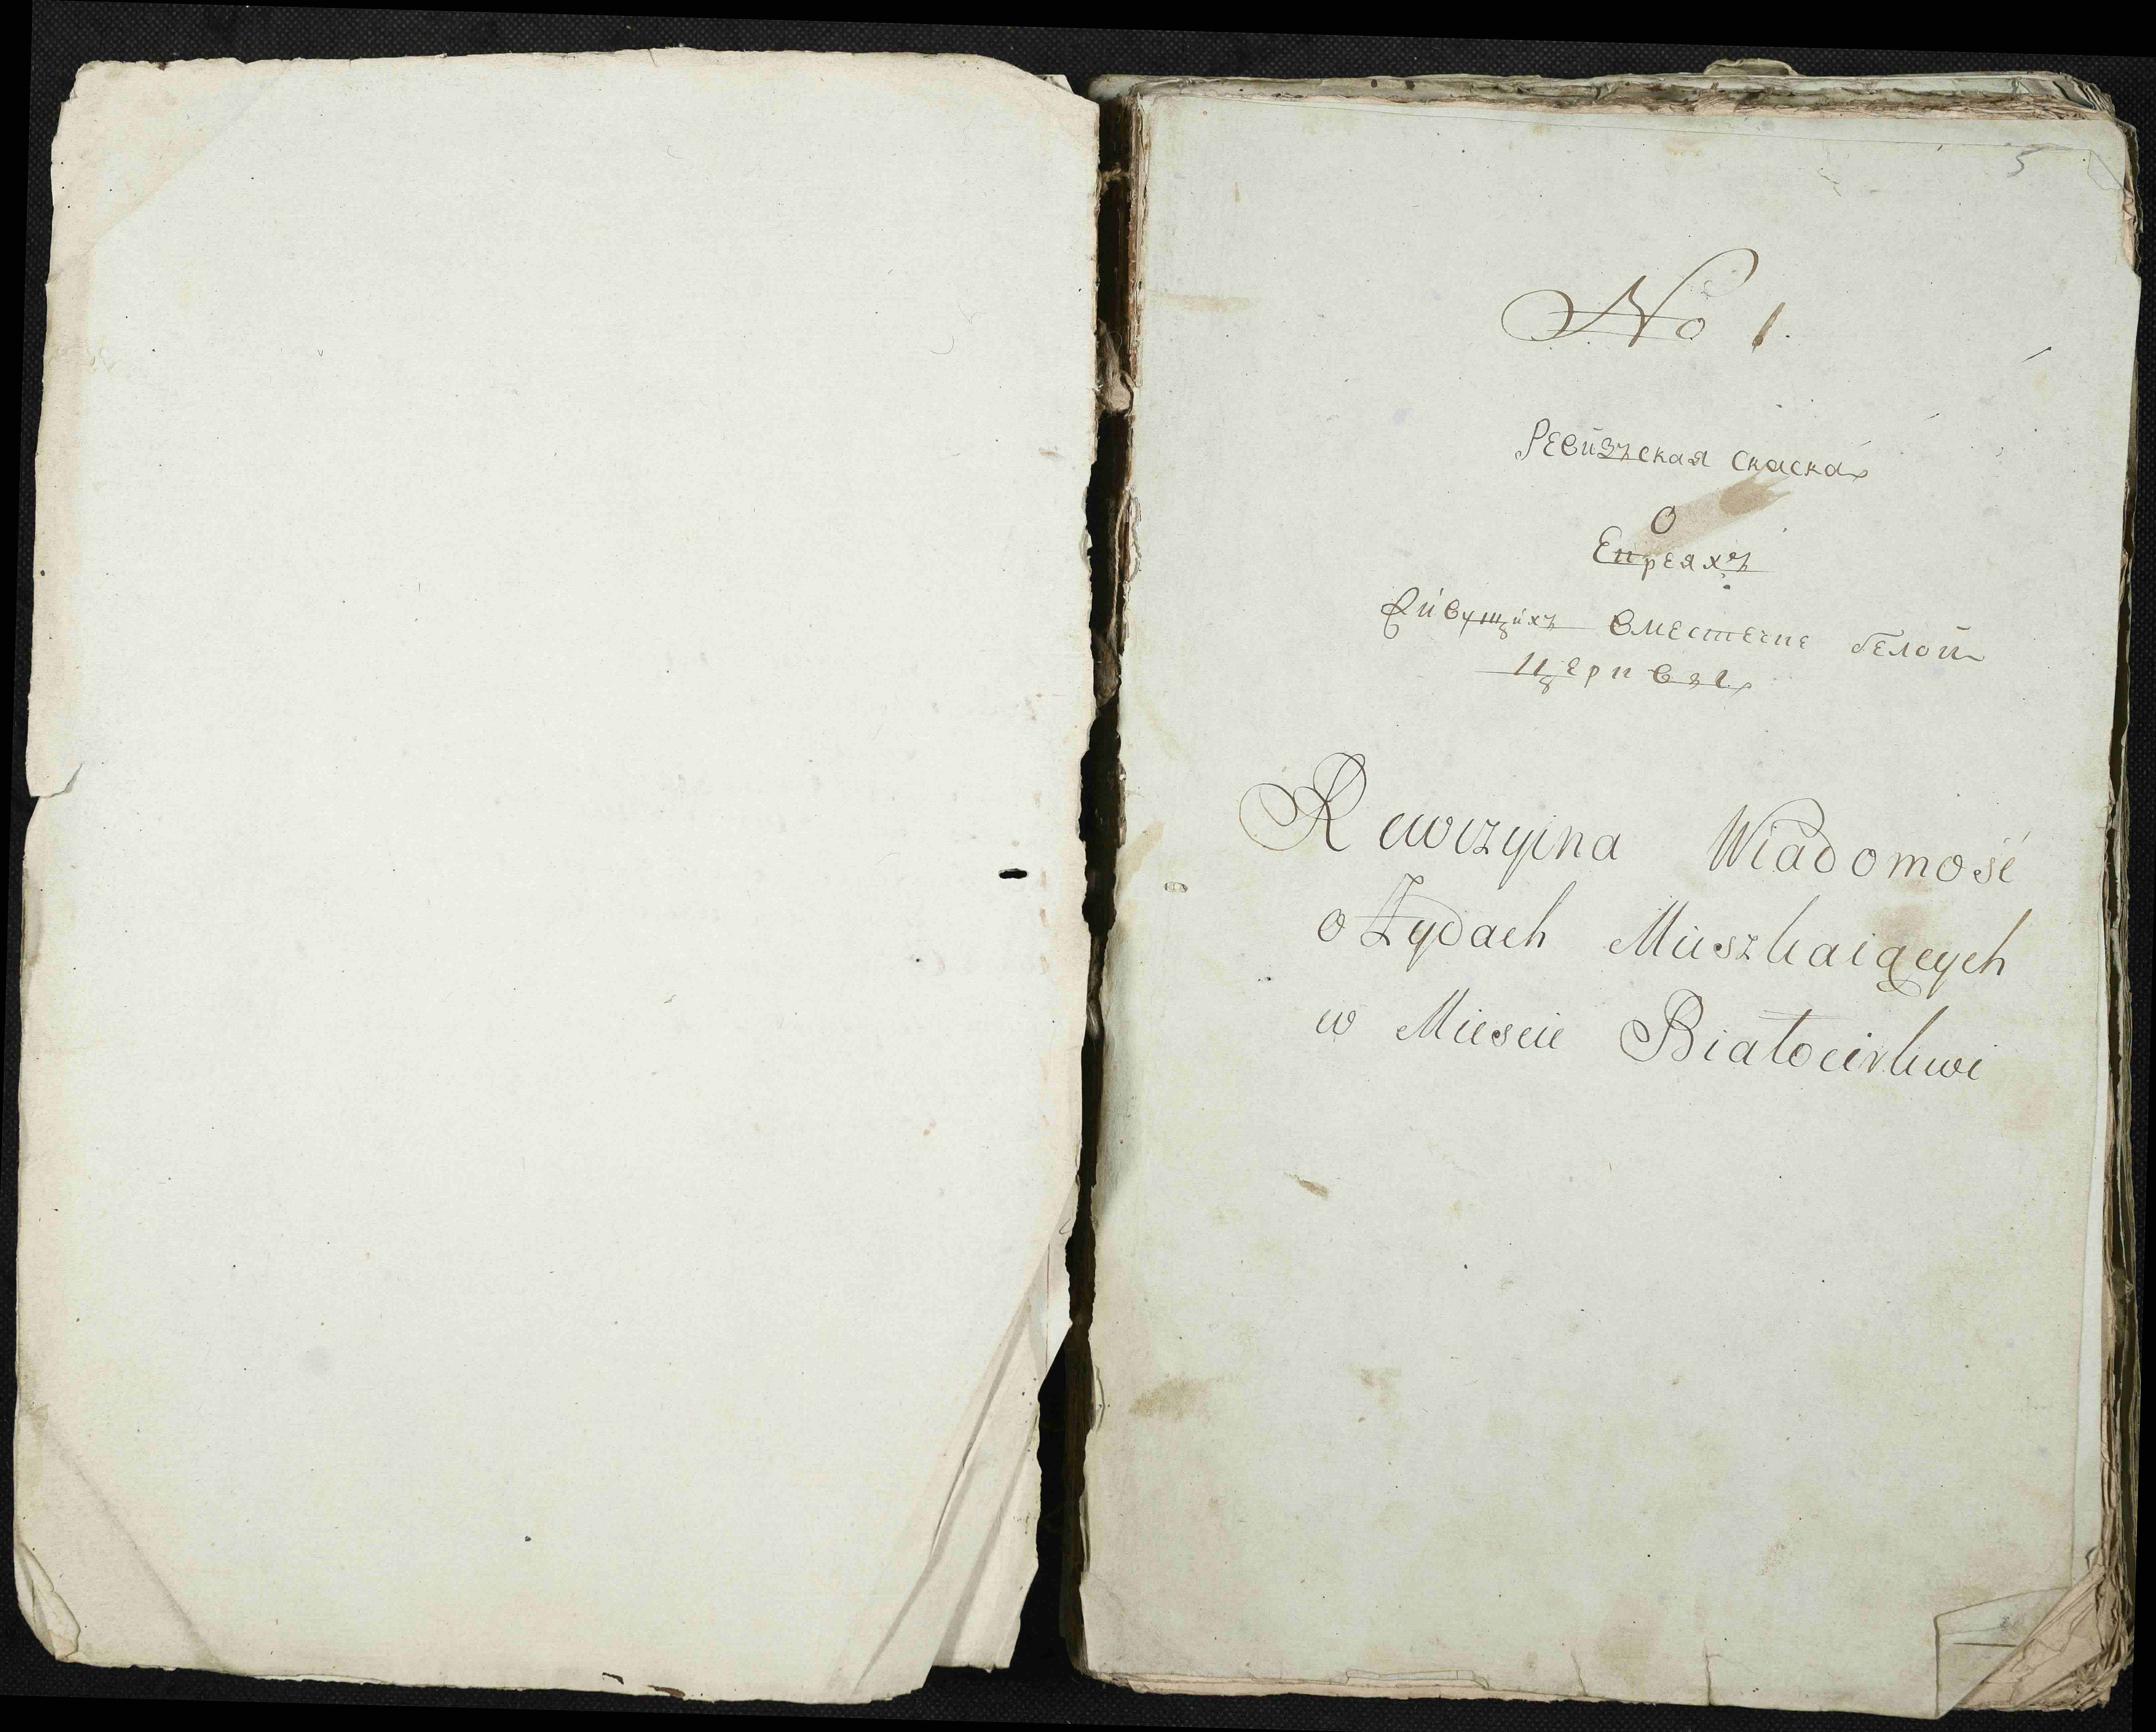 5
No 1.
Ревизъская скаска
О
Епреяхъ
Живущихъ вместечпе белой
Церпвы
Rewizyina Wiadomość
o Żydach Mieszkaiących
w Miescie Białocirkwi